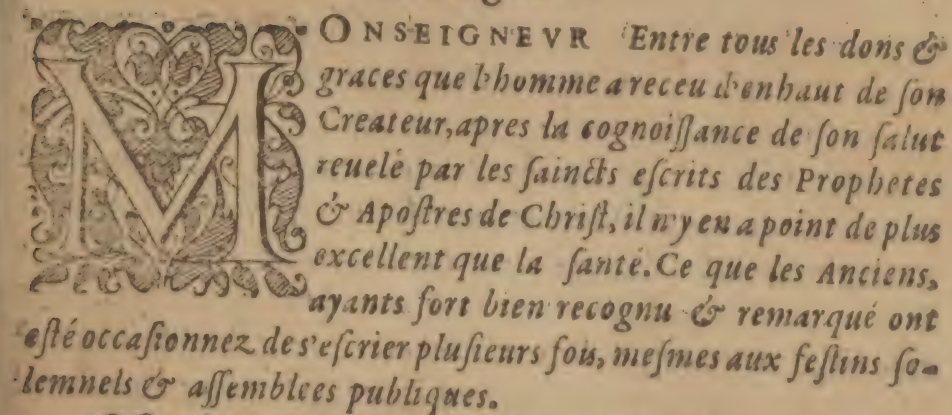 MONSEIGNEVR Entre tous les dons &
graces que l'homme a receu d'enhaut de ſon
Createur, apres la cognoiſſance de ſon ſalut
reuelé par les ſaincts eſcrits des Prophetes
& Apoſtres de Chriſt, il n'y en a point de plus
excellent que la ſanté. Ce que les Anciens,
ayants fort bien recognu & remarqué ont
eſté occaſionnez de s'eſcrier pluſieurs fois, meſmes aux feſtins ſo-
lemnels & aſſemblees publiques.